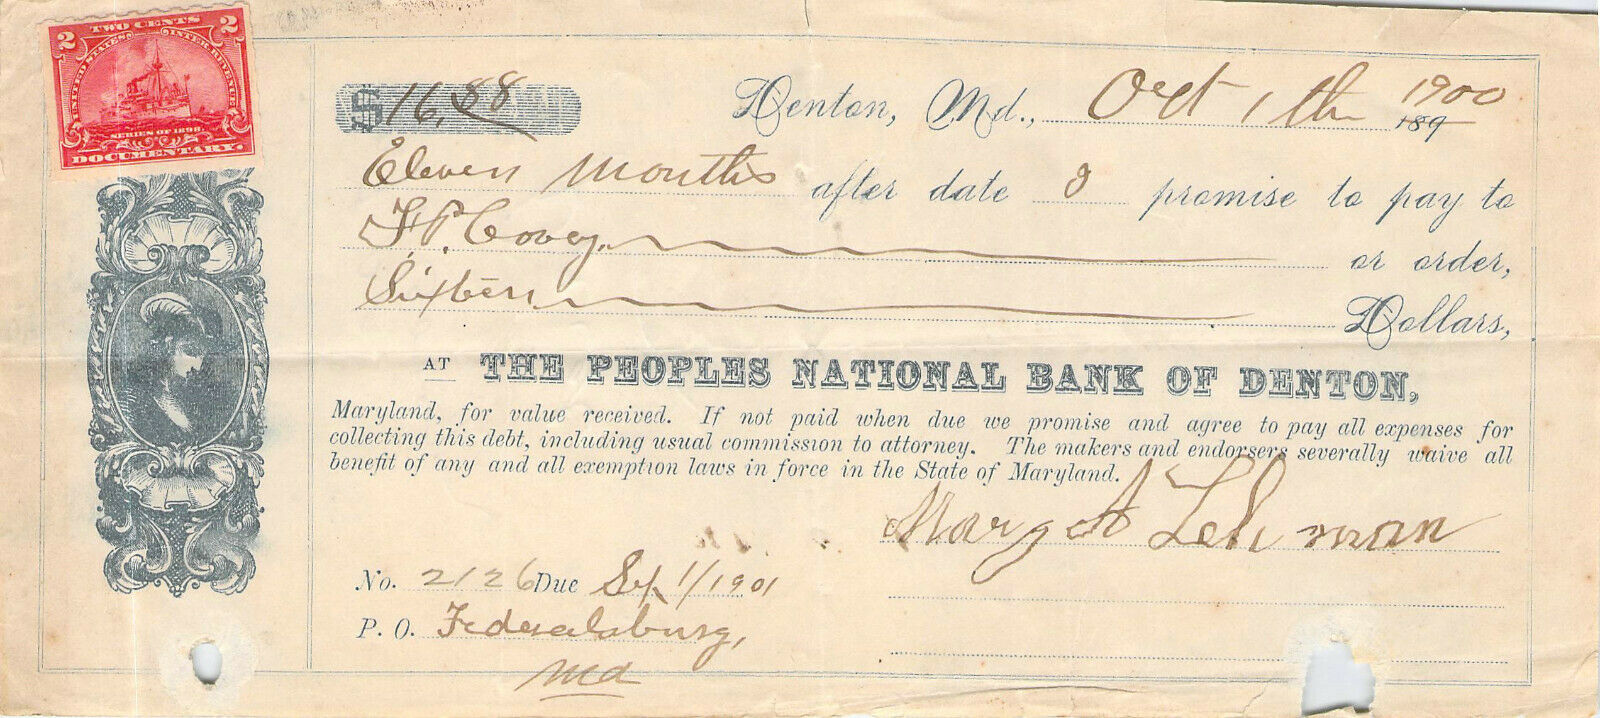 2 TWO CENTS 2
UNITED STATES INTER. REVENUE
SERIES OF 1898
DOCUMENTARY.
$ 16.88 Denton, Md., Oct 1th 1900
189
Eleven months after date I promise to pay to
F.P. Covey. or order,
Sixteen Dollars,
AT THE PEOPLES NATIONAL BANK OF DENTON,
Maryland, for value received. If not paid when due we promise and agree to pay all expenses for
collecting this debt, including usual commission to attorney. The makers and endorsers severally waive all
benefit of any and all exemption laws in force in the State of Maryland.
Mary A Lehman
No. 2126 Due Sep 1/1901
P. O. Federalsburg,
Md